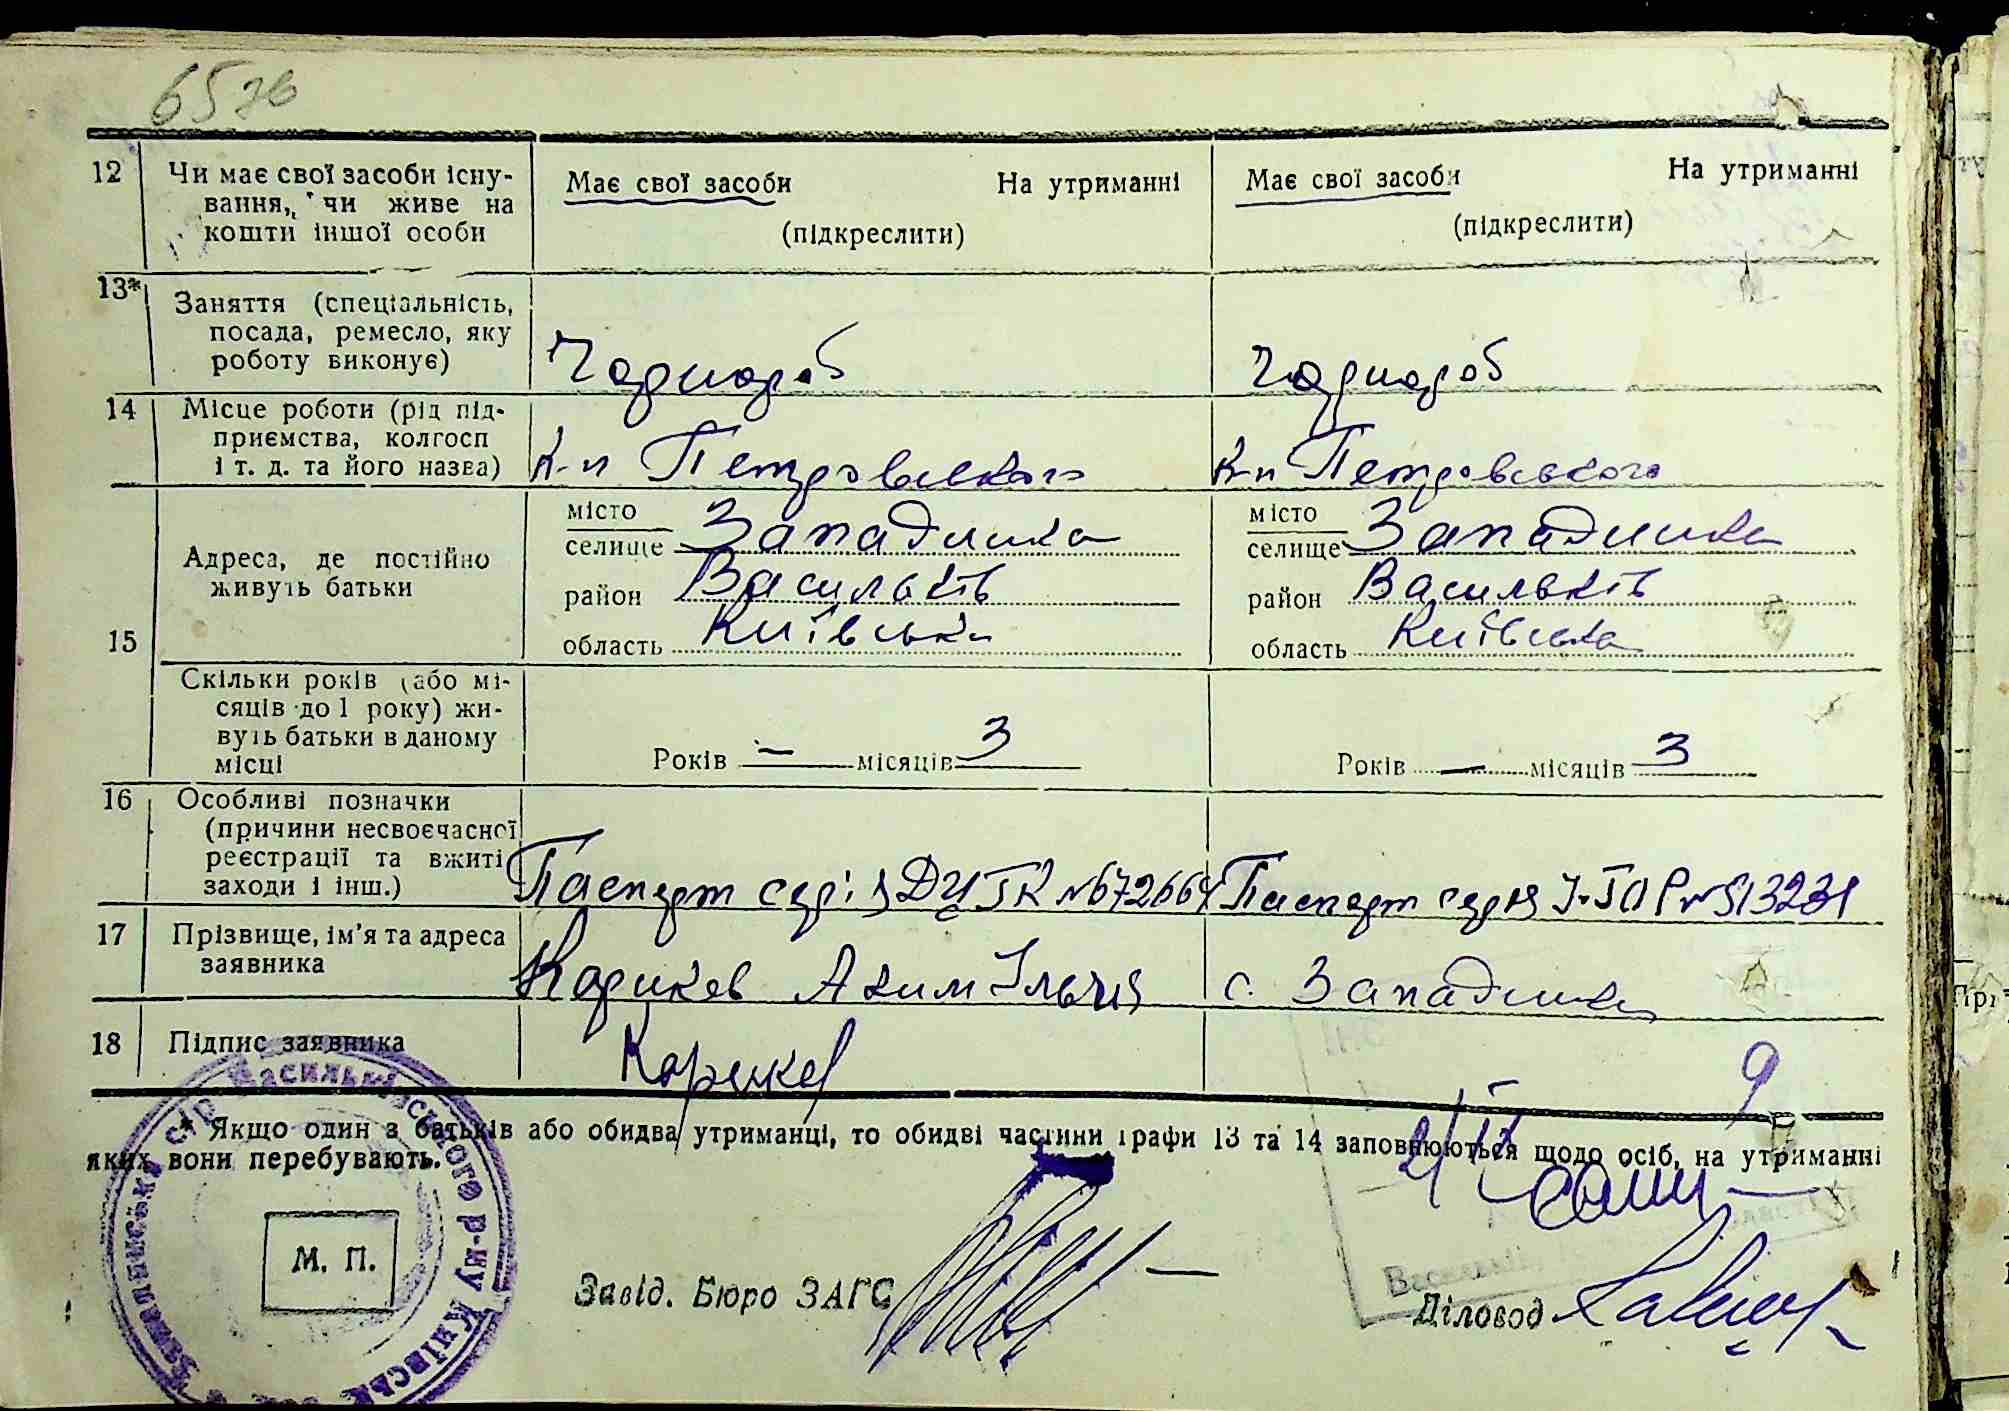 65 зв
12 Чи має свої засоби існу-
вання, чи живе на
кошти іншої особи
Має свої засоби На утриманні
(підкреслити)
Має свої засоби На утриманні
(підкреслити)
13* Заняття (спеціальність,
посада, ремесло, яку
роботу виконує)
Чорнороб
Чорнороб
14 Місце роботи (рід під-
приємства, колгосп
і т. д. та його назва)
К-п Петровського
К-п Петровського
15 Адреса, де постійно
живуть батьки
місто
селище Западинка
район Васильків
область Київська
місто
селище Западинка
район Васильків
область Київська
Скільки років (або мі-
сяців до 1 року) жи-
вуть батьки в даному
місці
Років — місяців 3
Років — місяців 3
16 Особливі позначки
(причини несвоєчасної
реєстрації та вжиті
заходи і інш.)
Паспорт
Паспорт
17 Прізвище, ім'я та адреса
заявника
Аким с. Западинка
18 Підпис заявника
* Якщо один з батьків або обидва утриманці, то обидві частини графи 13 та 14 заповнюються щодо осіб, на утриманні
яких вони перебувають.
М. П.
Завід. Бюро ЗАГС
Діловод